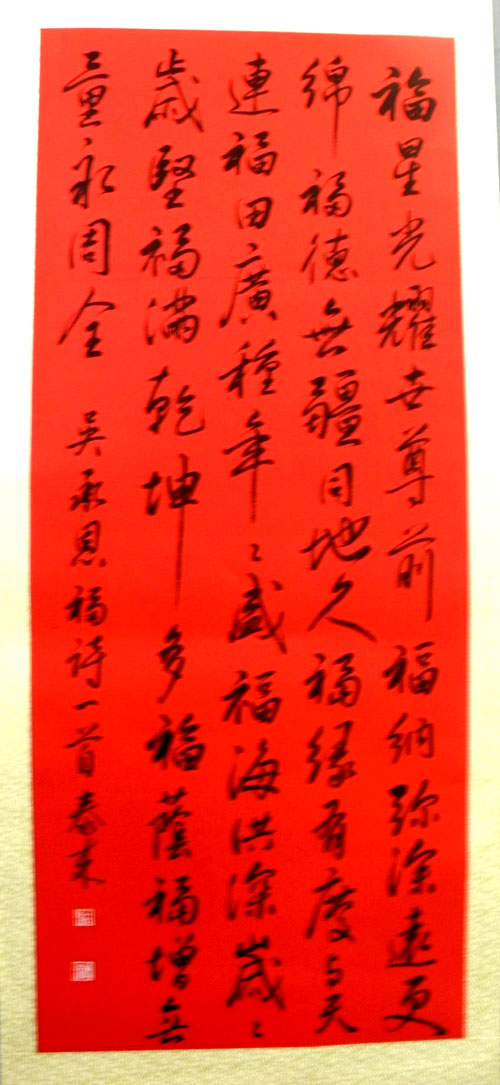 福星光耀世尊前福納弥深遠更
綿福德無疆同地久福緣有慶与天
連福田廣種年〻盛福海洪深歲〻
歲堅福滿乾坤多福蔭福增無
量永周全 吴承恩福詩一首